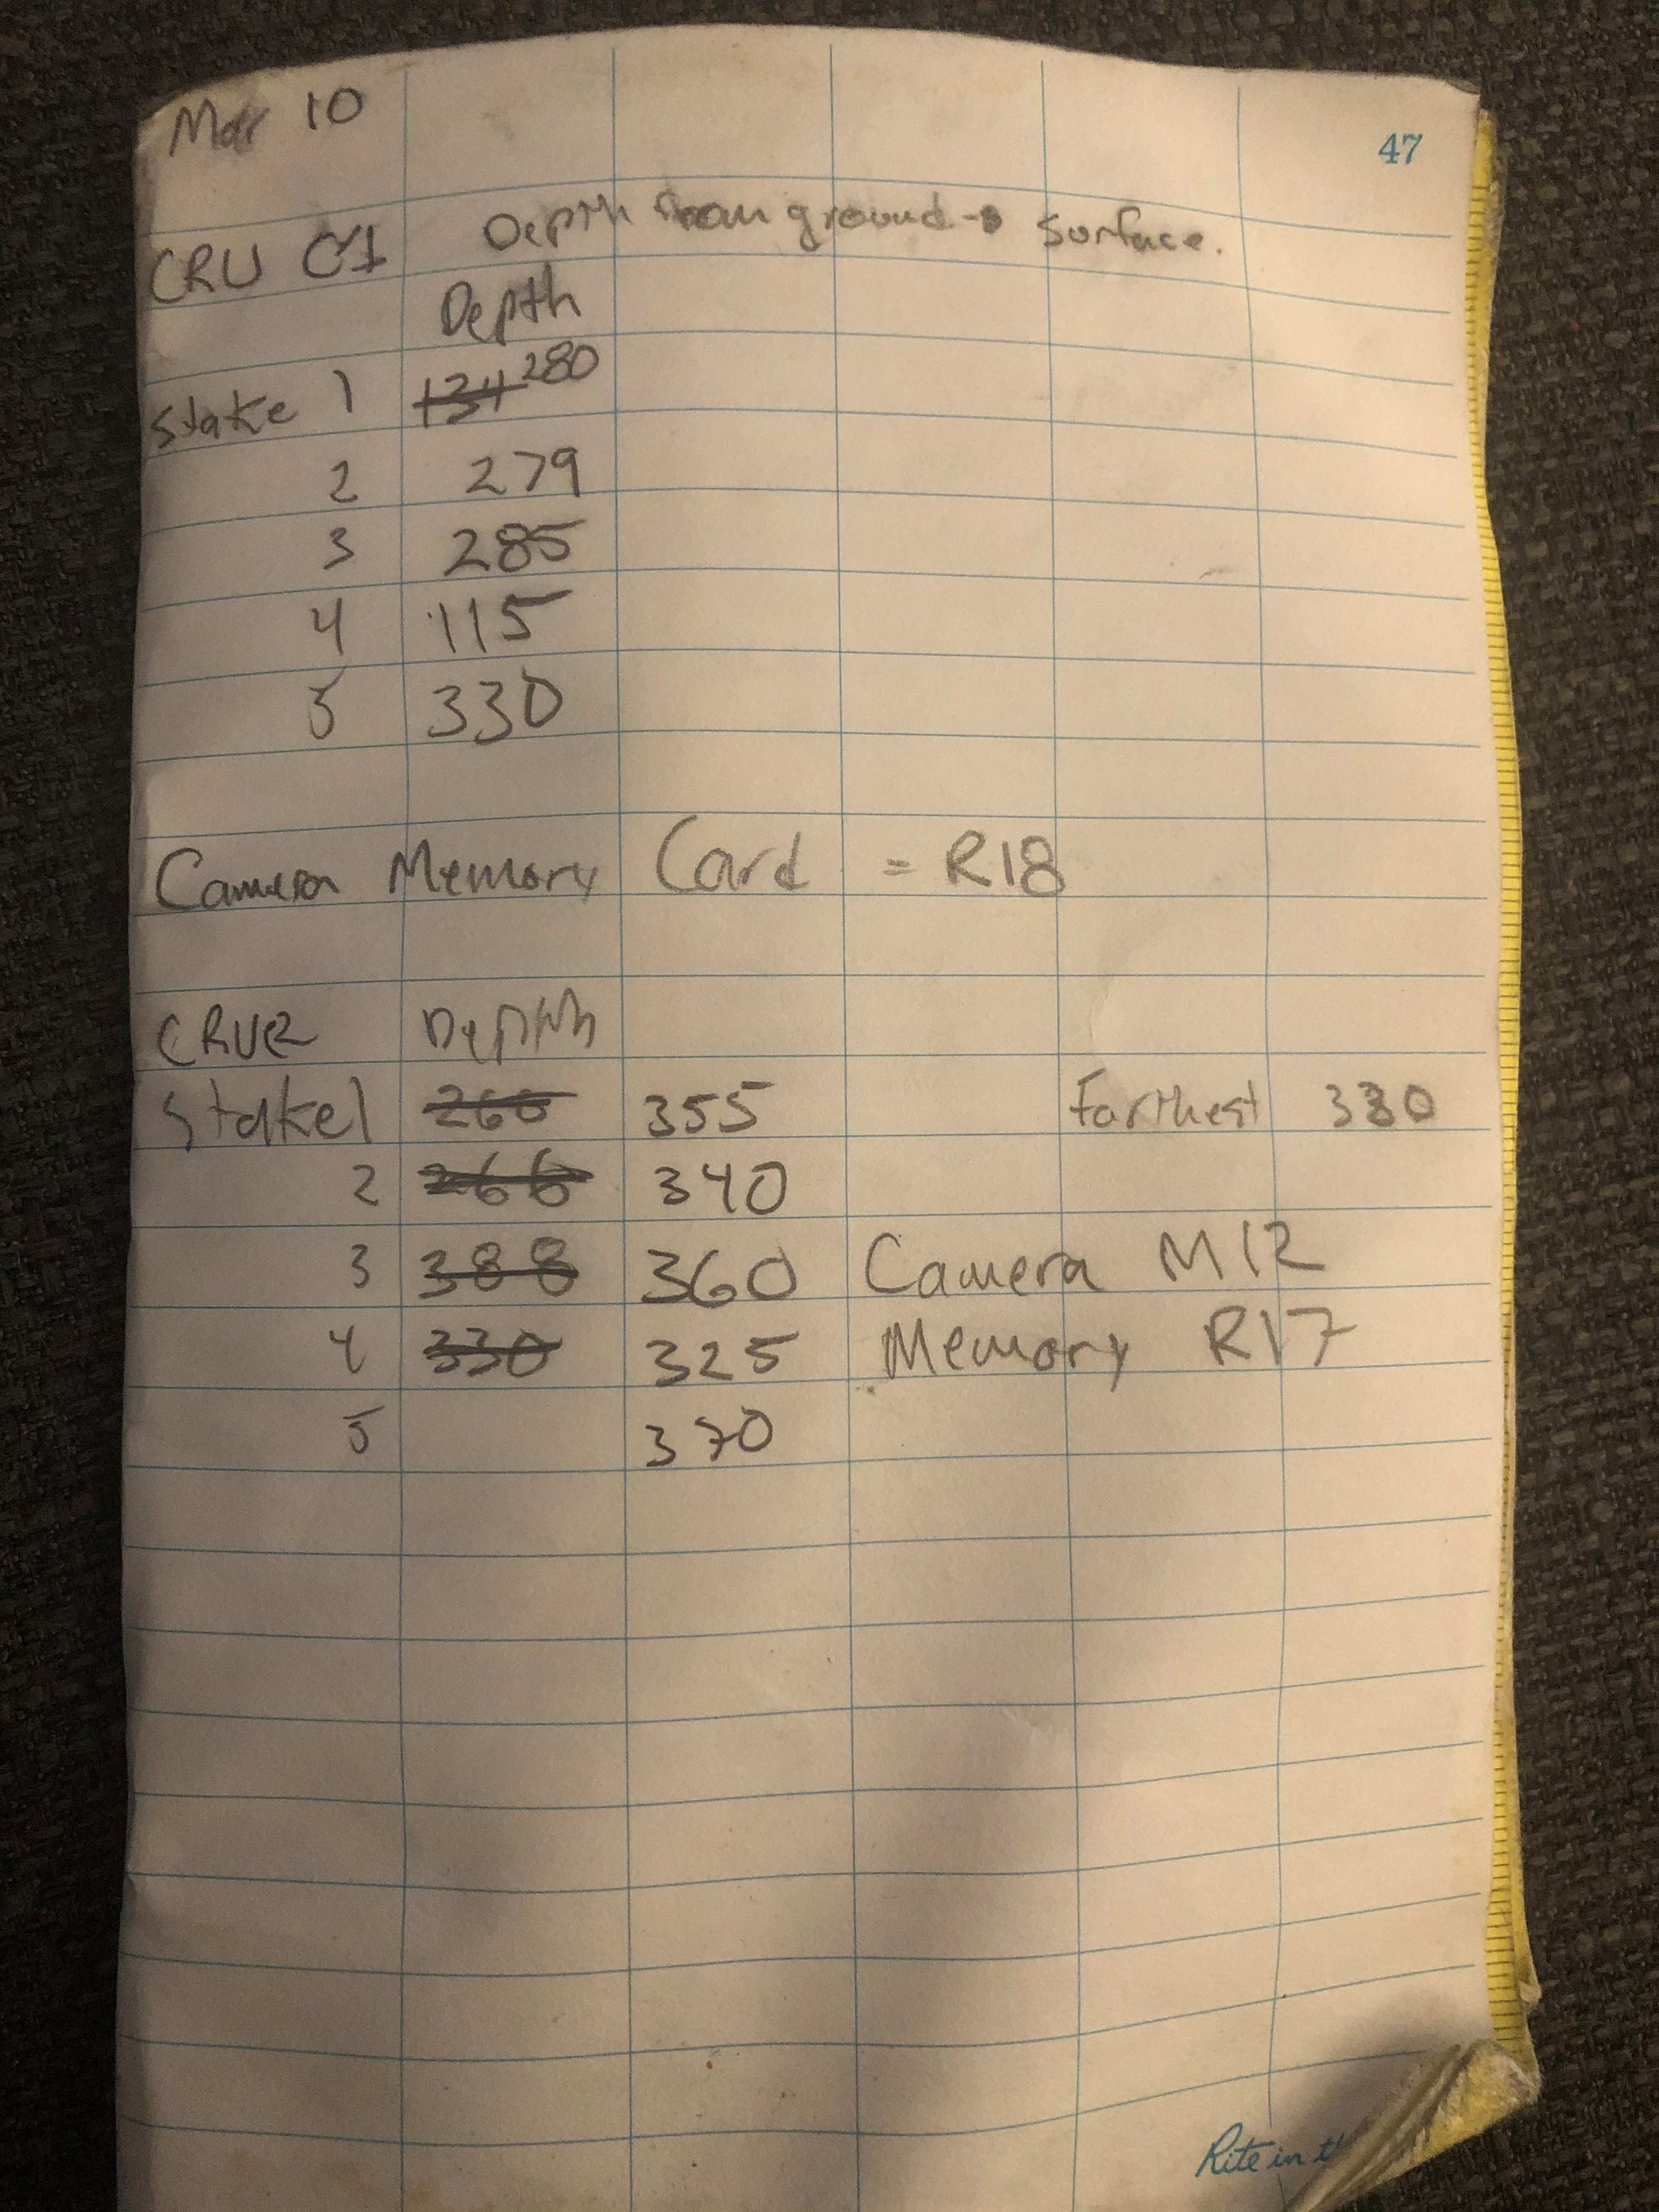 Mar 10
47
CRU C1 Depth from ground → surface.
Depth
Stake 1 134 280
2 279
3 285
4 115
5 330
Camera Memory Card = R18
CRUC2 Depth
Stake 1 260 355 Farthest 330
2 266 340
3 388 360 Camera M12
4 330 325 Memory R17
5 370
Rite in